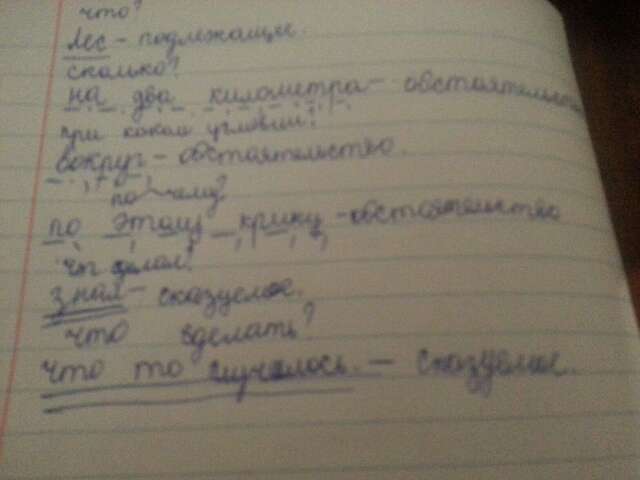 что?
лес - подлежащее.
сколько?
на два километра - обстоятельство
при каком условии?
вокруг - обстоятельство.
по чему?
по этому крику - обстоятельство
что делал?
знал - сказуемое.
что зделать?
что то случилось. - сказуемое.